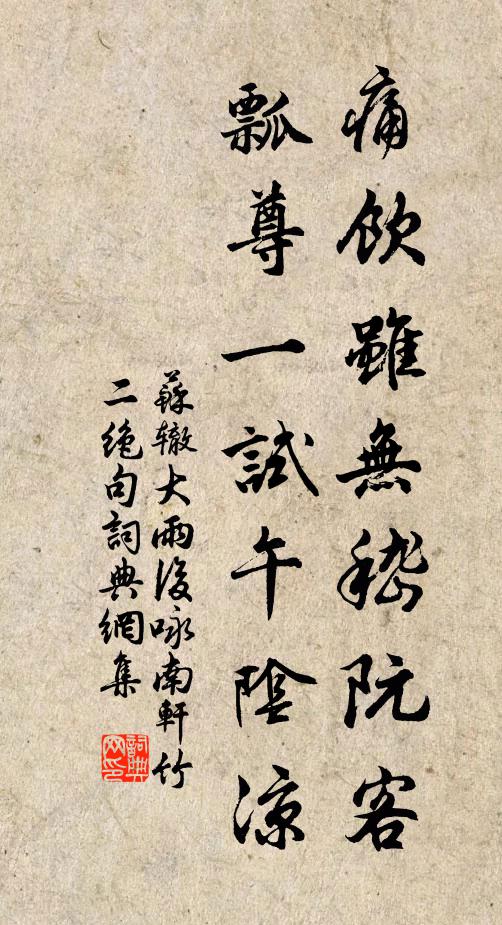 痛飲雖無嵇阮客
瓢尊一試午陰涼
蘇辙大雨後咏南軒竹
二絶句詞典網集
詞典
网印